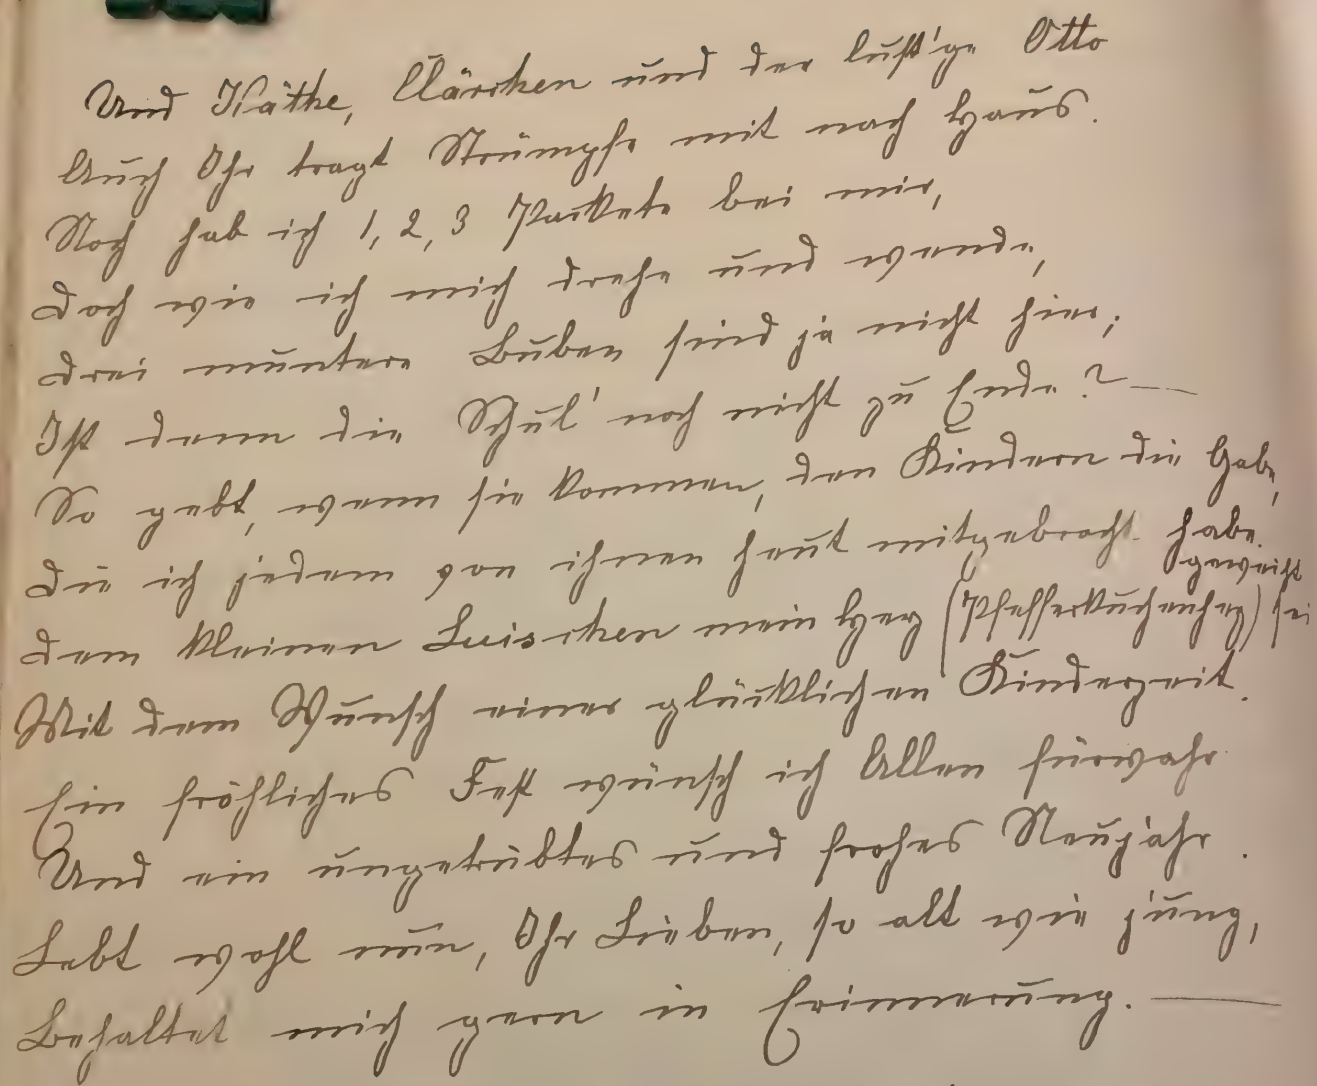 Und Käthe, Clärchen und der lust'ge Otto
Auch Ihr tragt Strümpfe mit nach Haus.
Noch hab ich 1, 2, 3 Packete bei mir,
Doch wie ich mich drehe und wende,
Drei muntere Buben sind ja nicht hier;
Ist denn die Schul' noch nicht zu Ende? —
So gebt, wenn sie kommen, den Kindern die Gabe,
Die ich jedem von ihnen heut mitgebracht habe.
Dem kleinen Luischen mein Herz (Pfefferkuchenherz) sei geweiht
Mit dem Wunsch einer glücklichen Kinderzeit.
Ein fröhliches Fest wünsch ich Allen fürwahr
Und ein ungetrübtes und frohes Neujahr.
Lebt wohl nun, Ihr Lieben, so alt wie jung,
Behaltet mich gern in Erinnerung. —